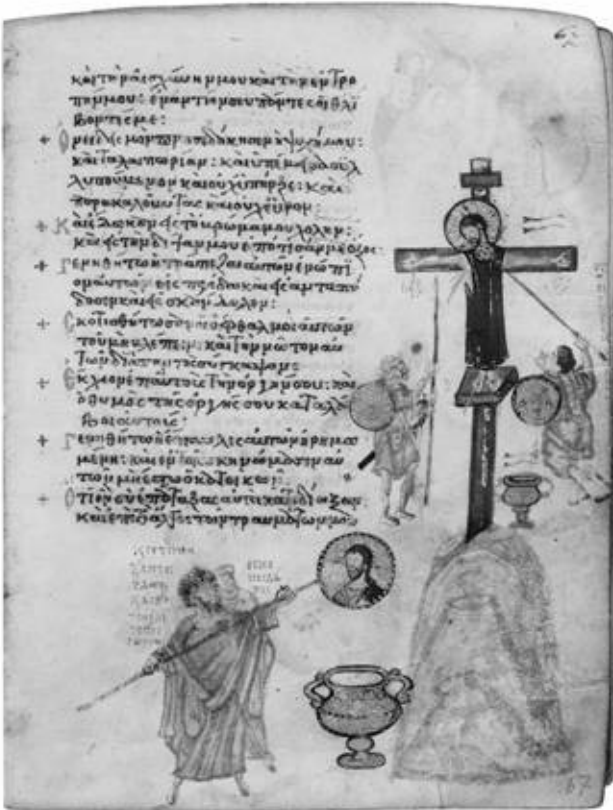 καὶ τὴν αἰσχύνην μου καὶ τὴν ἐντρο
πήν μου: ἐναντίον σου πάντες οἱ θλί
βοντές με:
+ Ὀνειδισμὸν προσεδόκησεν ἡ ψυχή μου:
καὶ ταλαιπωρίαν: καὶ ὑπέμεινα συλ
λυπούμενον καὶ οὐχ ὑπῆρξε: καὶ
παρακαλοῦντας καὶ οὐχ εὗρον:
+ Καὶ ἔδωκαν εἰς τὸ βρῶμά μου χολὴν:
καὶ εἰς τὴν δίψαν μου ἐπότισάν με ὄξος:
+ Γενηθήτω ἡ τράπεζα αὐτῶν ἐνώπι
ον αὐτῶν εἰς παγίδα καὶ εἰς ἀνταπό
δοσιν καὶ εἰς σκάνδαλον:
+ Σκοτισθήτωσαν οἱ ὀφθαλμοὶ αὐτῶν
τοῦ μὴ βλέπειν: καὶ τὸν νῶτον αὐ
τῶν διὰ παντὸς σύγκαμψον:
+ Ἔκχεον ἐπ' αὐτοὺς τὴν ὀργήν σου: καὶ
ὁ θυμὸς τῆς ὀργῆς σου καταλά
βοι αὐτούς:
+ Γενηθήτω ἡ ἔπαυλις αὐτῶν ἠρημω
μένη: καὶ ἐν τοῖς σκηνώμασιν αὐ
τῶν μὴ ἔστω ὁ κατοικῶν:
+ Ὅτι ὃν σὺ ἐπάταξας αὐτοὶ κατεδίωξαν:
καὶ ἐπὶ τὸ ἄλγος τῶν τραυμάτων μου
67